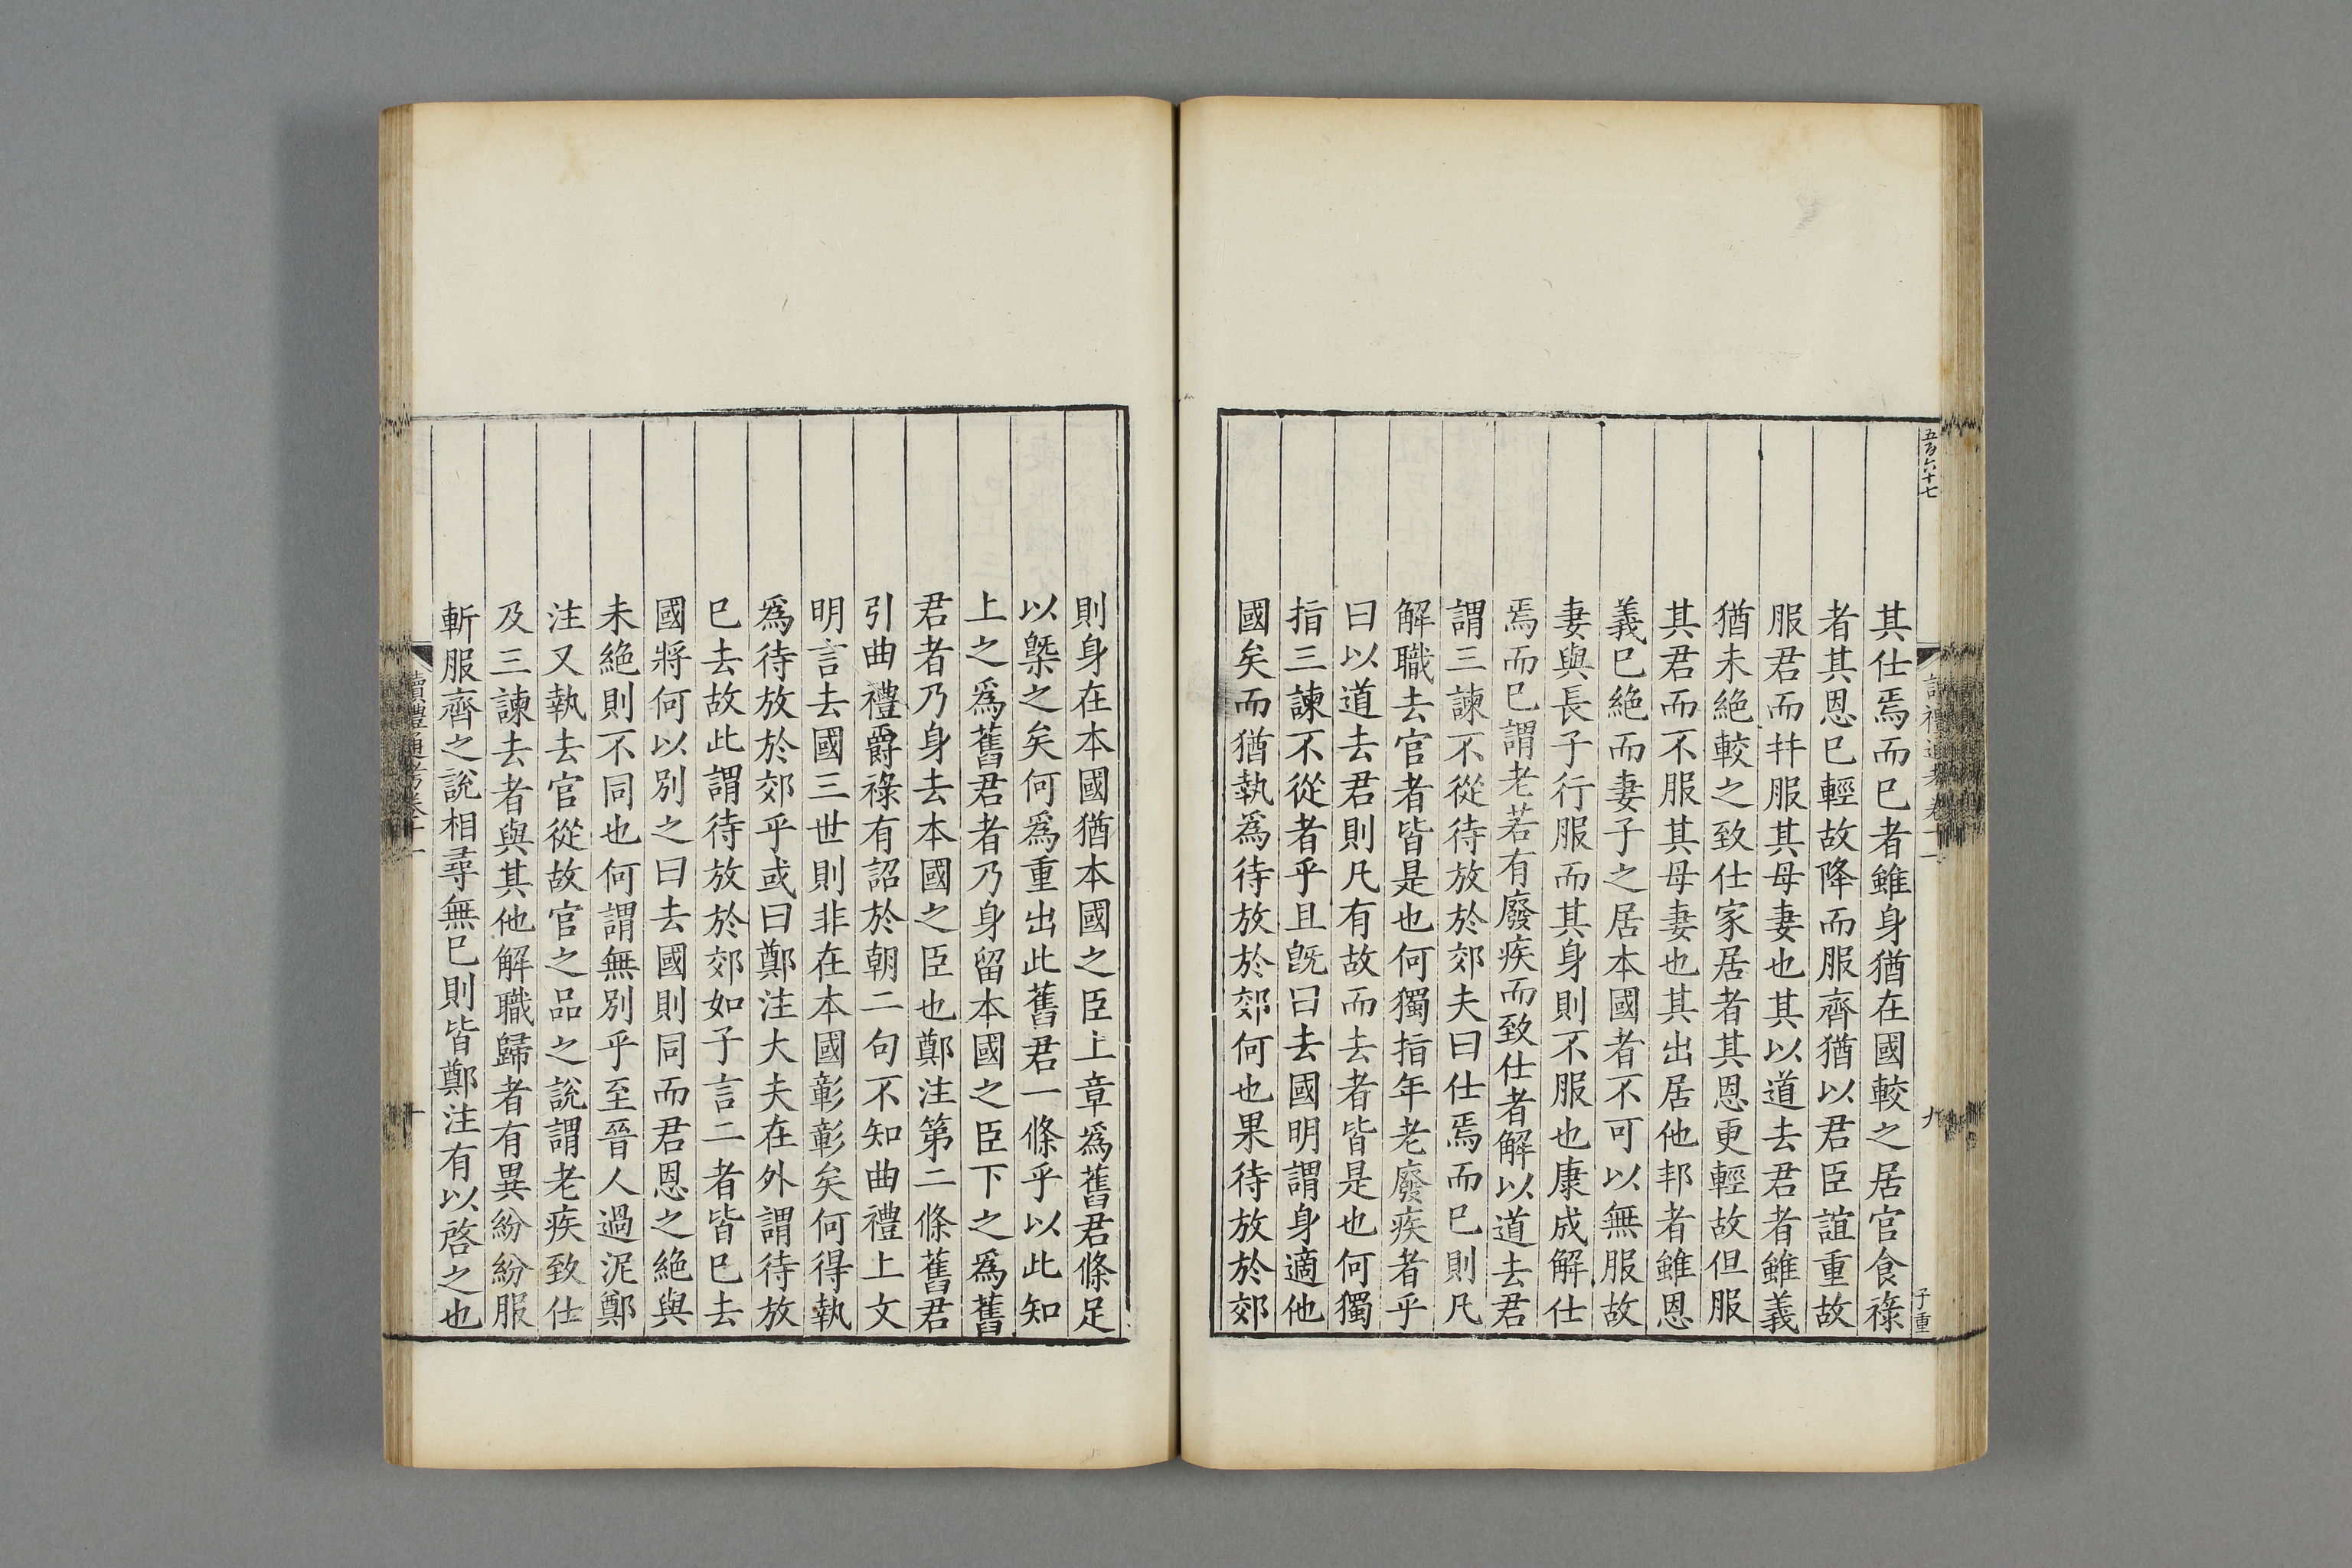 五百六十七
讀禮通考卷十一
九
子重
其仕焉而已者雖身猶在國較之居官食祿
者其恩已輕故降而服齊猶以君臣誼重故
服君而并服其母妻也其以道去君者雖義
猶未絶較之致仕家居者其恩更輕故但服
其君而不服其母妻也其出居他邦者雖恩
義已絶而妻子之居本國者不可以無服故
妻與長子行服而其身則不服也康成解仕
焉而已謂老若有廢疾而致仕者解以道去君
謂三諫不從待放於郊夫曰仕焉而已則凡
解職去官者皆是也何獨指年老廢疾者乎
曰以道去君則凡有故而去者皆是也何獨
指三諫不從者乎且旣曰去國明謂身適他
國矣而猶執為待放於郊何也果待放於郊
則身在本國猶本國之臣上章爲舊君條足
以槩之矣何爲重出此舊君一條乎以此知
上之爲舊君者乃身留本國之臣下之爲舊
君者乃身去本國之臣也鄭注第二條舊君
引曲禮爵祿有詔於朝二句不知曲禮上文
明言去國三世則非在本國彰彰矣何得執
爲待放於郊乎或曰鄭注大夫在外謂待放
已去故此謂待放於郊如子言二者皆已去
國將何以別之曰去國則同而君恩之絶與
未絶則不同也何謂無別乎至晉人過泥鄭
注又執去官從故官之品之說謂老疾致仕
及三諫去者與其他解職歸者有異紛紛服
斬服齊之說相尋無已則皆鄭注有以啓之也
讀禮通考卷十一
十